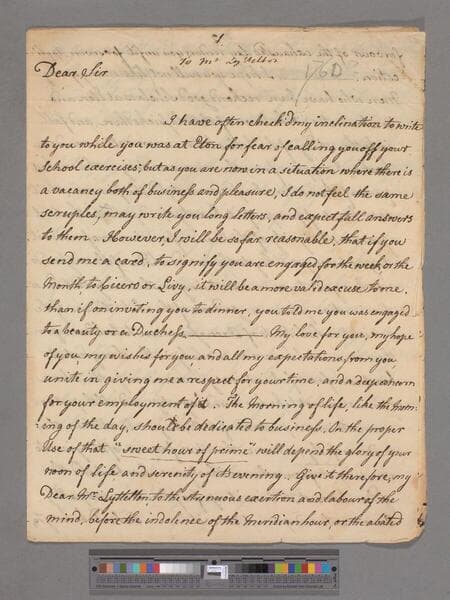 1
To Mr Lyttelton
Dear Sir
1760
I have often check'd my inclination to write
to you while you was at Eton for fear of calling you off your
School exercises; but as you are now in a situation where there is
a vacancy both of business and pleasure, I do not feel the same
scruples, may write you long letters, and expect full answers
to them. However, I will be so far reasonable, that if you
send me a card, to signify you are engaged for the week or the
Month to Cicero or Livy, it will be a more valid excuse to me.
than if on inviting you to dinner, you told me you was engaged
to a beauty or a Duchess. My love for you, my hope
of you, my wishes for you, and all my expectations from you
unite in giving me a respect for your time, and a deep concern
for your employment of it. The Morning of life, like the morn-
ing of the day, should be dedicated to business. On the proper
Use of that "sweet hour of prime" will depend the glory of your
noon of life and serenity of Evening. Give it therefore, my
Dear Mr. Lyttelton, to the strenuous exertion and labour of the
mind, before the indolence of the Meridian hour, or the abated